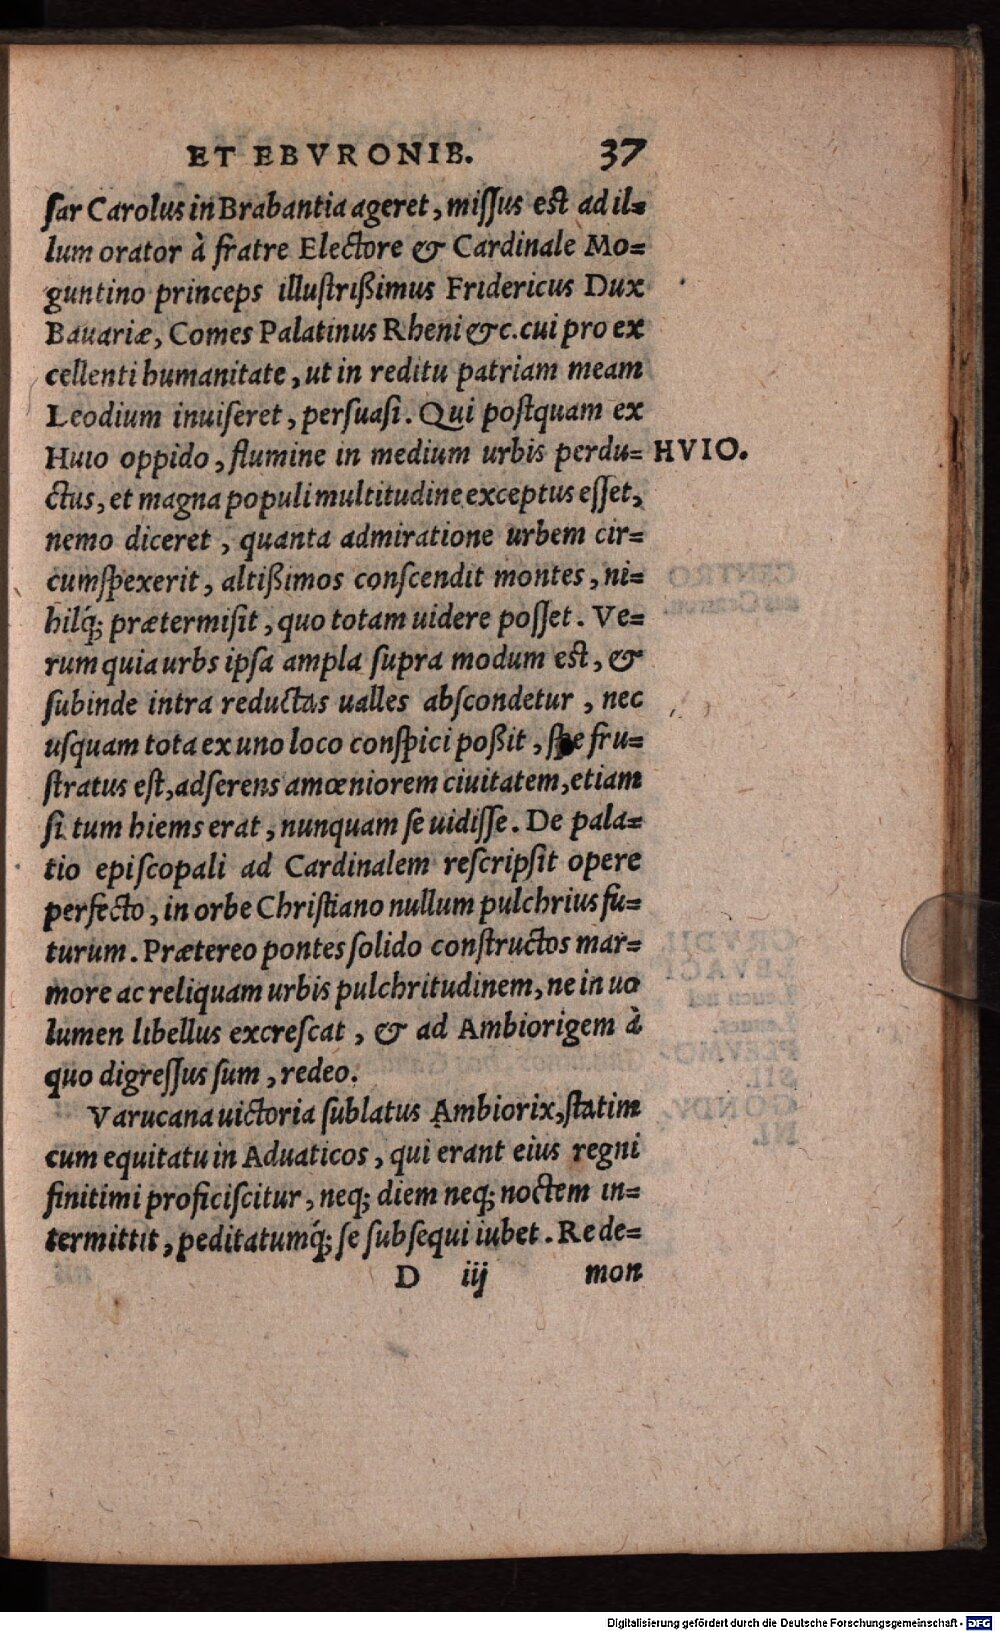 ET EBVRONIB. 37
ſar Carolus in Brabantia ageret, miſſus est ad il=
lum orator à fratre Electore & Cardinale Mo=
guntino princeps illuſtrißimus Fridericus Dux
Bauariæ, Comes Palatinus Rheni &c. cui pro ex
cellenti humanitate, ut in reditu patriam meam
Leodium inuiſeret, perſuaſi. Qui poſtquam ex
Huio oppido, flumine in medium urbis perdu= HVIO.
ctus, et magna populi multitudine exceptus eſſet,
nemo diceret, quanta admiratione urbem cir=
cumſpexerit, altißimos conſcendit montes, ni=
hilq́; prætermiſit, quo totam uidere poſſet. Ve=
rum quia urbs ipſa ampla ſupra modum est, &
ſubinde intra reductas ualles abſcondetur, nec
uſquam tota ex uno loco conſpici poßit, ſpe fru=
ſtratus eſt, adſerens amœniorem ciuitatem, etiam
ſi tum hiems erat, nunquam ſe uidiſſe. De pala=
tio epiſcopali ad Cardinalem reſcripſit opere
perfecto, in orbe Chriſtiano nullum pulchrius fu=
turum. Prætereo pontes ſolido conſtructos mar=
more ac reliquam urbis pulchritudinem, ne in uo
lumen libellus excreſcat, & ad Ambiorigem à
quo digreſſus ſum, redeo.
Varucana uictoria ſublatus Ambiorix, ſtatim
cum equitatu in Aduaticos, qui erant eius regni
finitimi proficiſcitur, neq; diem neq; noctem in=
termittit, peditatumq́; ſe ſubſequi iubet. Re de=
D iij mon
Digitalisierung gefördert durch die Deutsche Forschungsgemeinschaft - DFG